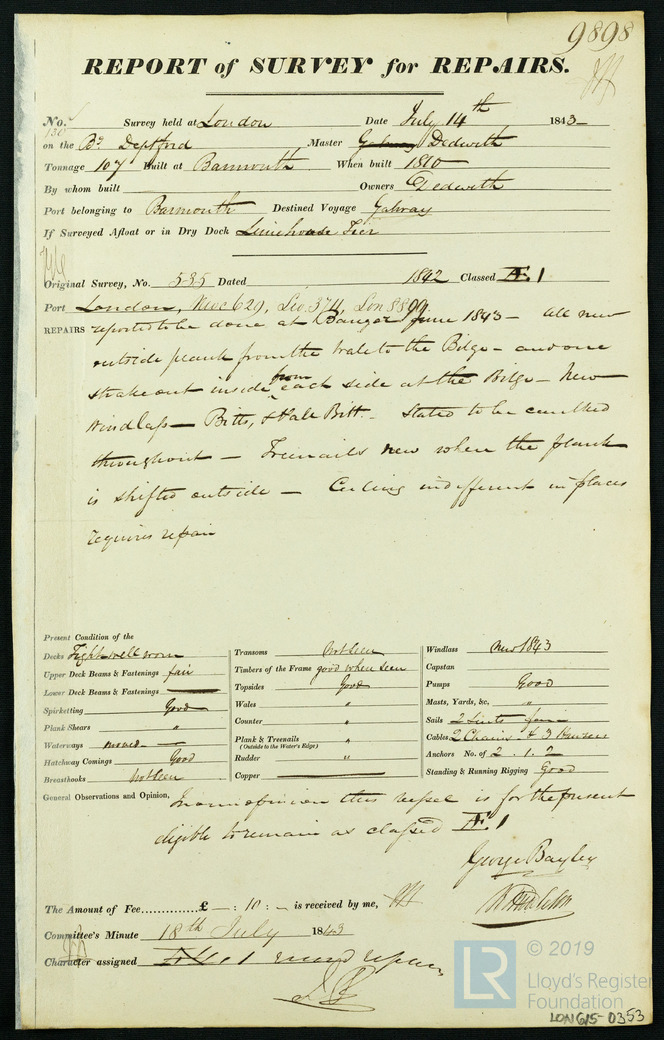 9898
REPORT of SURVEY for REPAIRS.
No. Survey held at London Date July 14th 1843
on the Bg Deptford Master Dedwith
Tonnage 107 Built at Barmouth When built 1810
By whom built Owners Dedwith
Port belonging to Barmouth Destined Voyage Galway
If Surveyed Afloat or in Dry Dock Limehouse Tier
Original Survey, No. 535 Dated 1842 Classed Æ 1
Port London, Newc 629, Liv. 374, Lon 8899
REPAIRS reported to be done at Bangor June 1843 - All new
outside plank from the Wale to the Bilge - and one
strake out inside from each side at the Bilge - New
Windlass - Bitts, & Pale Bitt - Stated to be caulked
throughout - Treenails new where the plank
is shifted outside - Ceiling indifferent in places
requires repair
Present Condition of the
Decks Tight well worn
Upper Deck Beams & Fastenings fair
Lower Deck Beams & Fastenings
Spirketting Good
Plank Shears "
Waterways
Hatchway Comings Good
Breasthooks not seen
Transoms not seen
Timbers of the Frame good when seen
Topsides Good
Wales "
Counter "
Plank & Treenails "
(Outside to the Water's Edge)
Rudder "
Copper
Windlass new 1843
Capstan
Pumps Good
Masts, Yards, &c. "
Sails 2 Suits fair
Cables 2 Chains & 3 Hawsers
Anchors No. of 2 . 1 . 2
Standing & Running Rigging Good
General Observations and Opinion, In our opinion this vessel is for the present
eligible to remain as classed Æ 1
George Bayley
The Amount of Fee............£ — : 10 : — is received by me,
Committee's Minute 18th July 1843
Character assigned
© 2019
LR Lloyd's Register
Foundation
LON615-0353